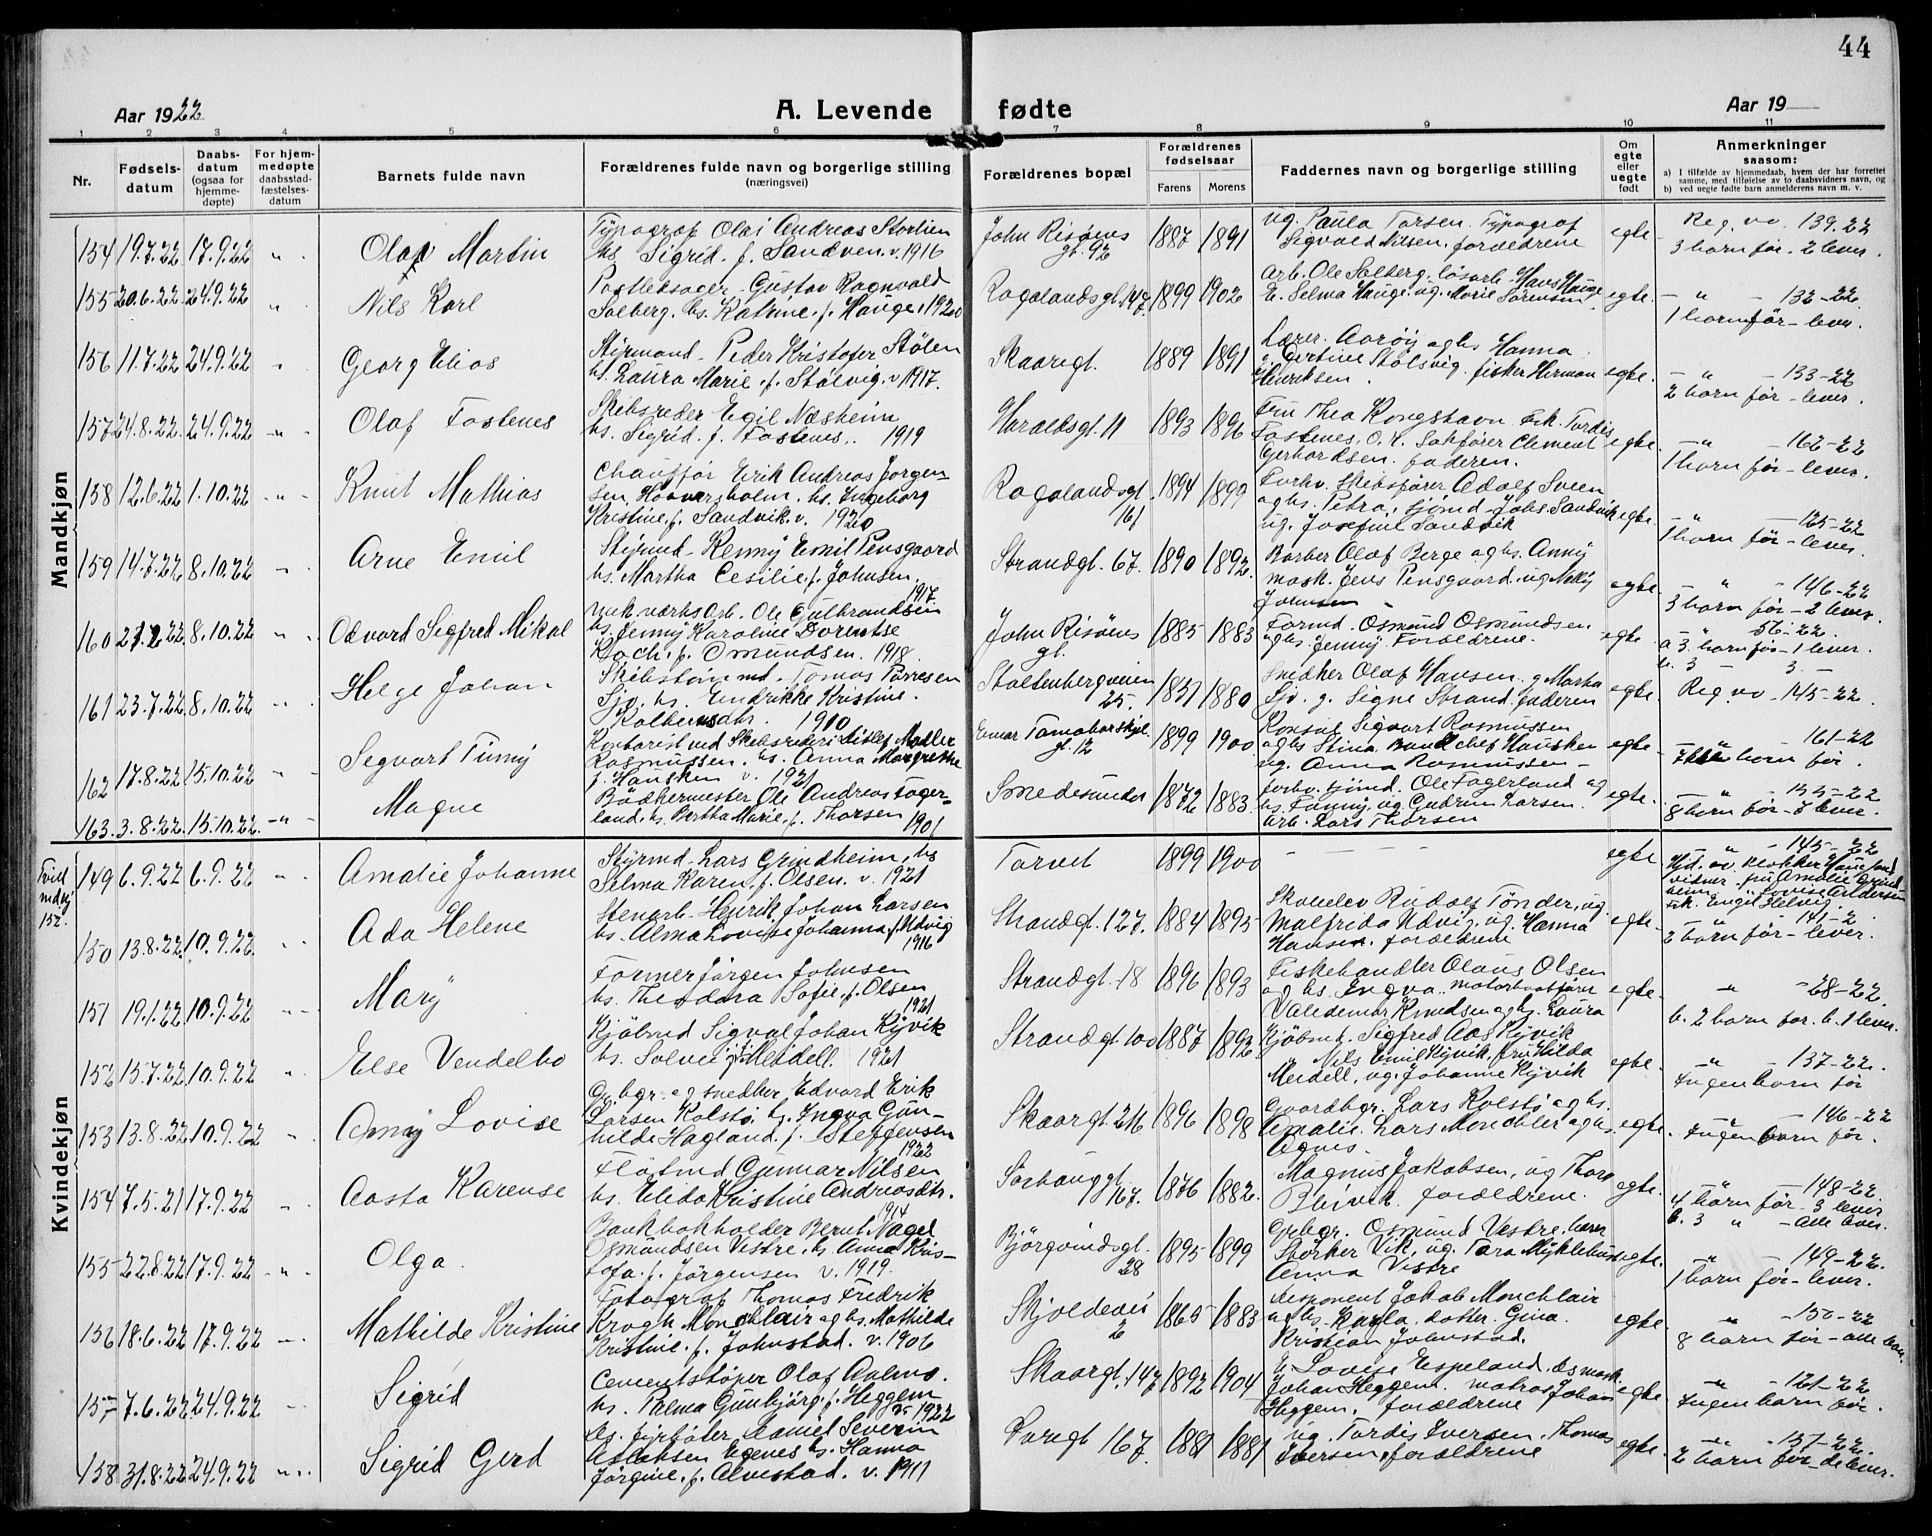 44
Aar 1922 A. Levende fødte Aar 19
1 2 3 4 5 6 7 8 9 10 11
Nr. Fødsels-datum Daabs-datum (ogsaa for hjemme-døpte) For hjem-medøpte daabsstad-fæstelses-datum Barnets fulde navn Forældrenes fulde navn og borgerlige stilling (næringsvei) Forældrenes bopæl Forældrenes fødselsaar Farens Morens Faddernes navn og borgerlige stilling Om egte eller uegte født Anmerkninger saasom:
a) I tilfælde av hjemmedaab, hvem der har forrettet samme, med tilføielse av to daabsvidners navn, og
b) ved uegte fødte barn anmelderens navn m. v.
Mandkjøn
154 19.7.22 17.9.22 " Olaf Martin
Typograf Olai Andreas Storlien
hs Sigrid f. Sandven v. 1916
John Risøens gt. 92 1887 1891
ug. Paula Torsen. Typograf
Sigvald Nilsen, forældrene
egte Reg. no 139.22
3 born før - 2 lever.
155 20.6.22 24.9.22 " Nils Karl
Postbetsager Gustav Ragnvald
Solberg. hs. Katrine f. Hauge v 1920
Rogalandsgt. 147 1899 1902
Arb. Ole Solberg, løsarb Hans Hauge
E. Selma Hauge, ug. Marie Sørensen
egte - " - 132-22
1 born før - lever.
156 11.7.22 24.9.22 " Georg Elias
Styrmand Peder Kristofer Stølen
hs. Laura Marie f. Stølvig v 1917.
Skaaregt. 1889 1891
Lærer Aarøy og hs Hanna
Gertine Stølsvig, fisker Herman
Henriksen.
egte. - " - 133-22
2 born før - lever.
157 24.8.22 24.9.22 " Olaf Fostenes
Skibsreder Egil Næsheim
hs. Sigrid f. Fostenes. 1919
Haraldsgt. 11 1893 1896
Fru Thea Kongshavn Frk. Tordis
Fostenes, O.r. Sakfører Clement
Gerhardsen. faderen.
egte. - " - 162-22
1 born før - lever.
158 12.6.22 1.10.22 " Knut Mathias
Chauffør Erik Andreas Jørgen-
sen Haaversholm. hs. Ingeborg
Kristine f. Sandvik v. 1920
Rogalandsgt. 161 1894 1899
Forhv. Skibsfører Adolf Sveen
og hs. Petra, Sjømd Johs. Sandvik
ug. Josefine Sandvik
egte. - " - 125-22
1 born før - lever.
159 14.7.22 8.10.22 " Arne Emil
Styrmd Kenny Emil Pensgaard
hs. Martha Cesilie f. Johnsen.
1917
Strandgt. 67. 1890 1892
Barber Olaf Berge og hs. Anny
mask. Jens Pensgaard, ug Nelly
Johnsen
egte. - " - 146-22
3 born før - 2 lever.
160 8.10.22 " Odvard Sigfred Mikal
mek. værks arb. Ole Gulbrandsen
hs. Jenny Karoline Dorentse
Koch. f. Omundsen. 1918.
John Risøens gt. 1885 1883
Formd. Osmund Osmundsen
og hs Jenny Forældrene.
egte. - " - 56-22.
a 3 born før - 1 lever.
b. 3 - 3 -
161 23.7.22 8.10.22 " Helge Johan
Skibstømmd. Tomas Torresen
Sjø. hs. Endrikke Kristine
Kolbensdtr. 1910
Stoltenbergveien 25. 1880
Snedker Olaf Hansen. g. Martha
Sjø. g. Signe Strand, faderen
egte. Reg. no 145-22
162 17.8.22 15.10.22 " Segvart Timmy
Kontorist ved Skibsrederi Ditlef Møller
Rasmussen. hs. Anna Margrethe
f. Hausken v. 1921
Einar Tambarskjel. gt. 12 1899 1900
Konsul Sigvart Rasmussen
og hs Stina Bankchef Hausken
ug. Anna Rasmussen
egte - " - 161-22
born før.
163. 3.8.22. 15.10.22. " Magne
Bødkermester Ole Andreas Fager-
land. hs. Bertha Marie f. Thorsen
1901
Smedesundet 1872 1883
forhv. Sjømd. Ole Fagerland og
hs. Fanny, ug Gudrun Larsen.
Arb. Lars Thorsen
egte. - " - 155-22
8 born før - 7 lever.
Kvindekjøn
149 6.9.22 6.9.22 " Amalie Johanne
Styrmd Lars Grindheim, hs
Selma Karen f. Olsen. v. 1921
Torvet 1899 1900
egte - " - 145-22
Hjd. av klokker
150 13.8.22 10.9.22 " Ada Helene
Stenarb. Henrik Johan Larsen
hs. Alma Lovise Johanna f. Udvig
1916
Strandgt. 127. 1884 1895
Skomker Rudolf Tønder, ug.
Malfrida Udvig, ug. Hanna
Hansen, forældrene
egte. - " - 141-2
2 born før - lever.
151 19.1.22 10.9.22 " Mary
Former Jørgen Johnsen
hs. Theodora Sofie f. Olsen
1921
Strandgt. 18 1896 1893
Fiskehandler Olaus Olsen
og hs. Ingva. motorbaatfører
Valdemar Knudsen og hs. Laura
egte. " - 28-22.
b. 2 born før. b. 1 lever.
152 15.7.22 10.9.22 " Else Vendelbo
Kjøbmd Sigval Johan Kyvik
hs. Solveig f. Meidell. 1921
Strandgt 100 1887 1892
Kjøbmt. Sigfred Aas Kyvik
Nils Emil Kyvik, fru Hilda
Meidell, ug. Johanne Kyvik
egte. " - 137-22.
Ingen born før
153 13.8.22 10.9.22 " Anny Lovise
Gbgr. og snedker Edvard Erik
Larsen Kolstø. hs. Ingva Gun-
hilde Hagland f. Steffensen
1922
Skaaregt. 216 1896 1898
Gaardbgr. Lars Kolstø og hs.
Amalie. Lars Monchler og hs.
Agnes.
egte. " - 146-22
Ingen born før.
154 7.5.21 17.9.22 " Aasta Karense
Fløtmd Gunnar Nilsen
hs. Elida Kristine Andreasdtr.
1914
Sørhauggt. 167. 1876 1882.
Magnus Jakobsen, ug Thora
Blivik. forældrene.
egte. " - 148-22.
4 born før - 3 lever
b. 3 " - alle lever.
155 22.8.22 17.9.22 " Olga
Bankbokholder Bernt Nagel
Osmundsen Vestre. hs. Anna Kris-
tofa f. Jørgensen v. 1919.
Bjørgvindsgt. 28 1895 1899
Gbbgr. Osmund Vestre. lærer
Størker Vik, ug. Tora Myklebust
Anna Vestre
egte. " - 149-22.
1 born før - lever.
156 18.6.22 17.9.22 " Mathilde Kristine
Fotograf Thomas Fredrik
Krogh Monchlair og hs. Mathilde
Kristine f. Johnstad. v. 1906
Skjoldevei 2 1865 1883
Disponent Jakob Monchlair
og hs. Karla, datter Gina.
Kristian Johnstad.
egte. " - 150-22
8 born før - alle lever.
157 7.6.22 24.9.22 " Sigrid
Cementstøper Olaf Aalmo.
hs. Palma Gunbjørg f. Heggem
v. 1922
Skaaregt. 147 1892 1904
E. Lovise Espeland. Ds mask.
Johan Heggem. matros Johan
Heggem, forældrene
egte " - 121-22
Ingen born før.
158 31.8.22 24.9.22 " Sigrid Gerd
Ds. fyrbøter Daniel Severin
Aslaksen Egenes hs. Hanna
Jørgine f. Alvestad. v. 1911
167. 1881 1881
ug. Tordis Iversen. Thomas
Iversen, forældrene
egte. " - 157-22
2 born før - de lever.